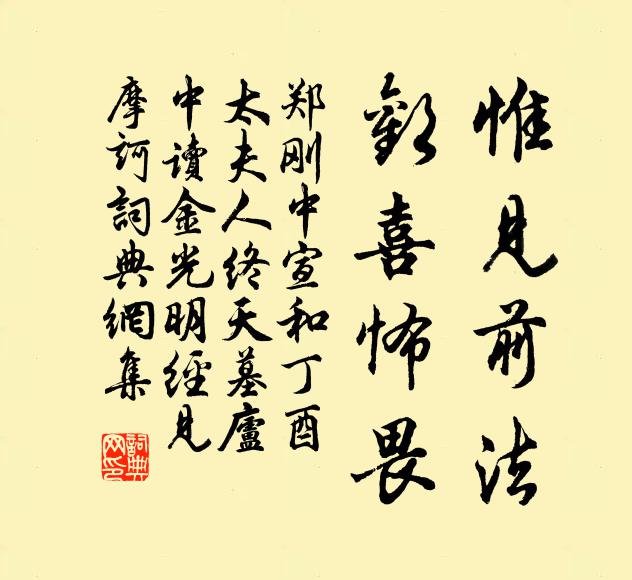 惟見前法
歡喜怖畏
郑刚中宣和丁酉
太夫人终天墓廬
中讀金光明經見
摩訶詞典網集
詞典網印